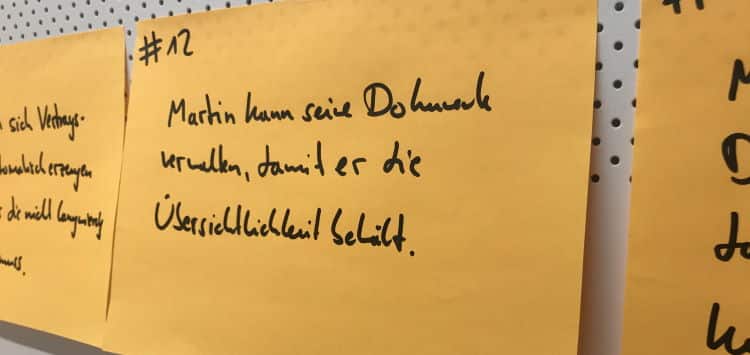 sich Vertrags-
automatisch erzeugen
die nicht langwierig
muss.
#12
Martin kann seine Dokumente
verwalten, damit er die
Übersichtlichkeit behält.
M
D